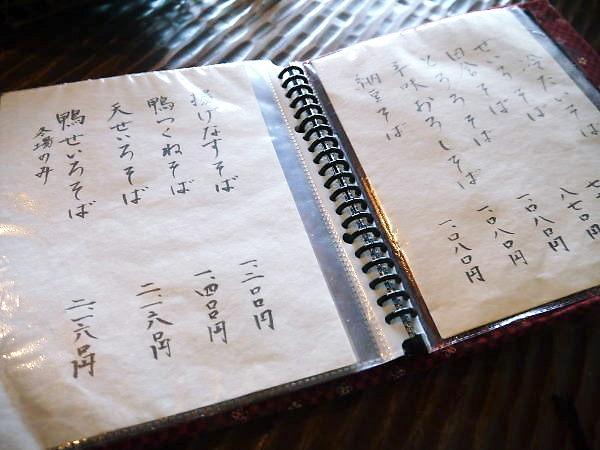 冷たいそば
せいろそば 七七〇円
田舎そば 八七〇円
とろろそば 一、〇八〇円
辛味おろしそば 一、〇八〇円
納豆そば 一、〇八〇円
揚げなすそば 一、三〇〇円
鴨つくねそば 一、四〇〇円
天せいろそば 二、一六〇円
鴨せいろそば 二、一六〇円
冬場のみ